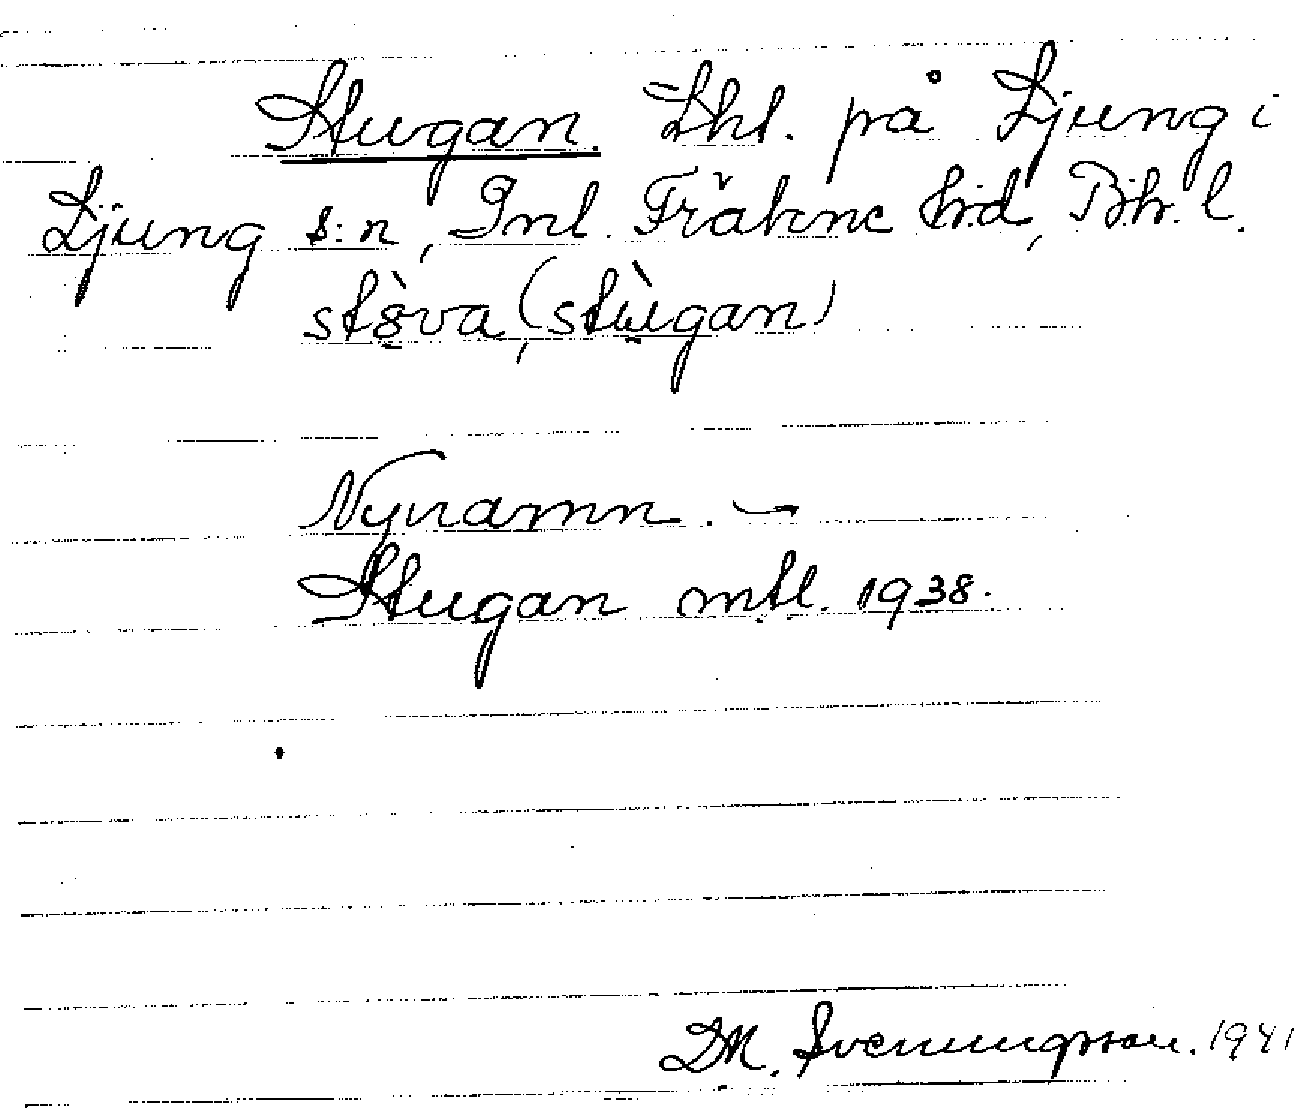 Stugan. Lht. på Ljung i
Ljung s:n, Inl. Fräkne hd, Bh. l.
stòva, (stùgan)
Nynamn. –
Stugan mtl. 1938.
D.M. Svenningsson. 1941